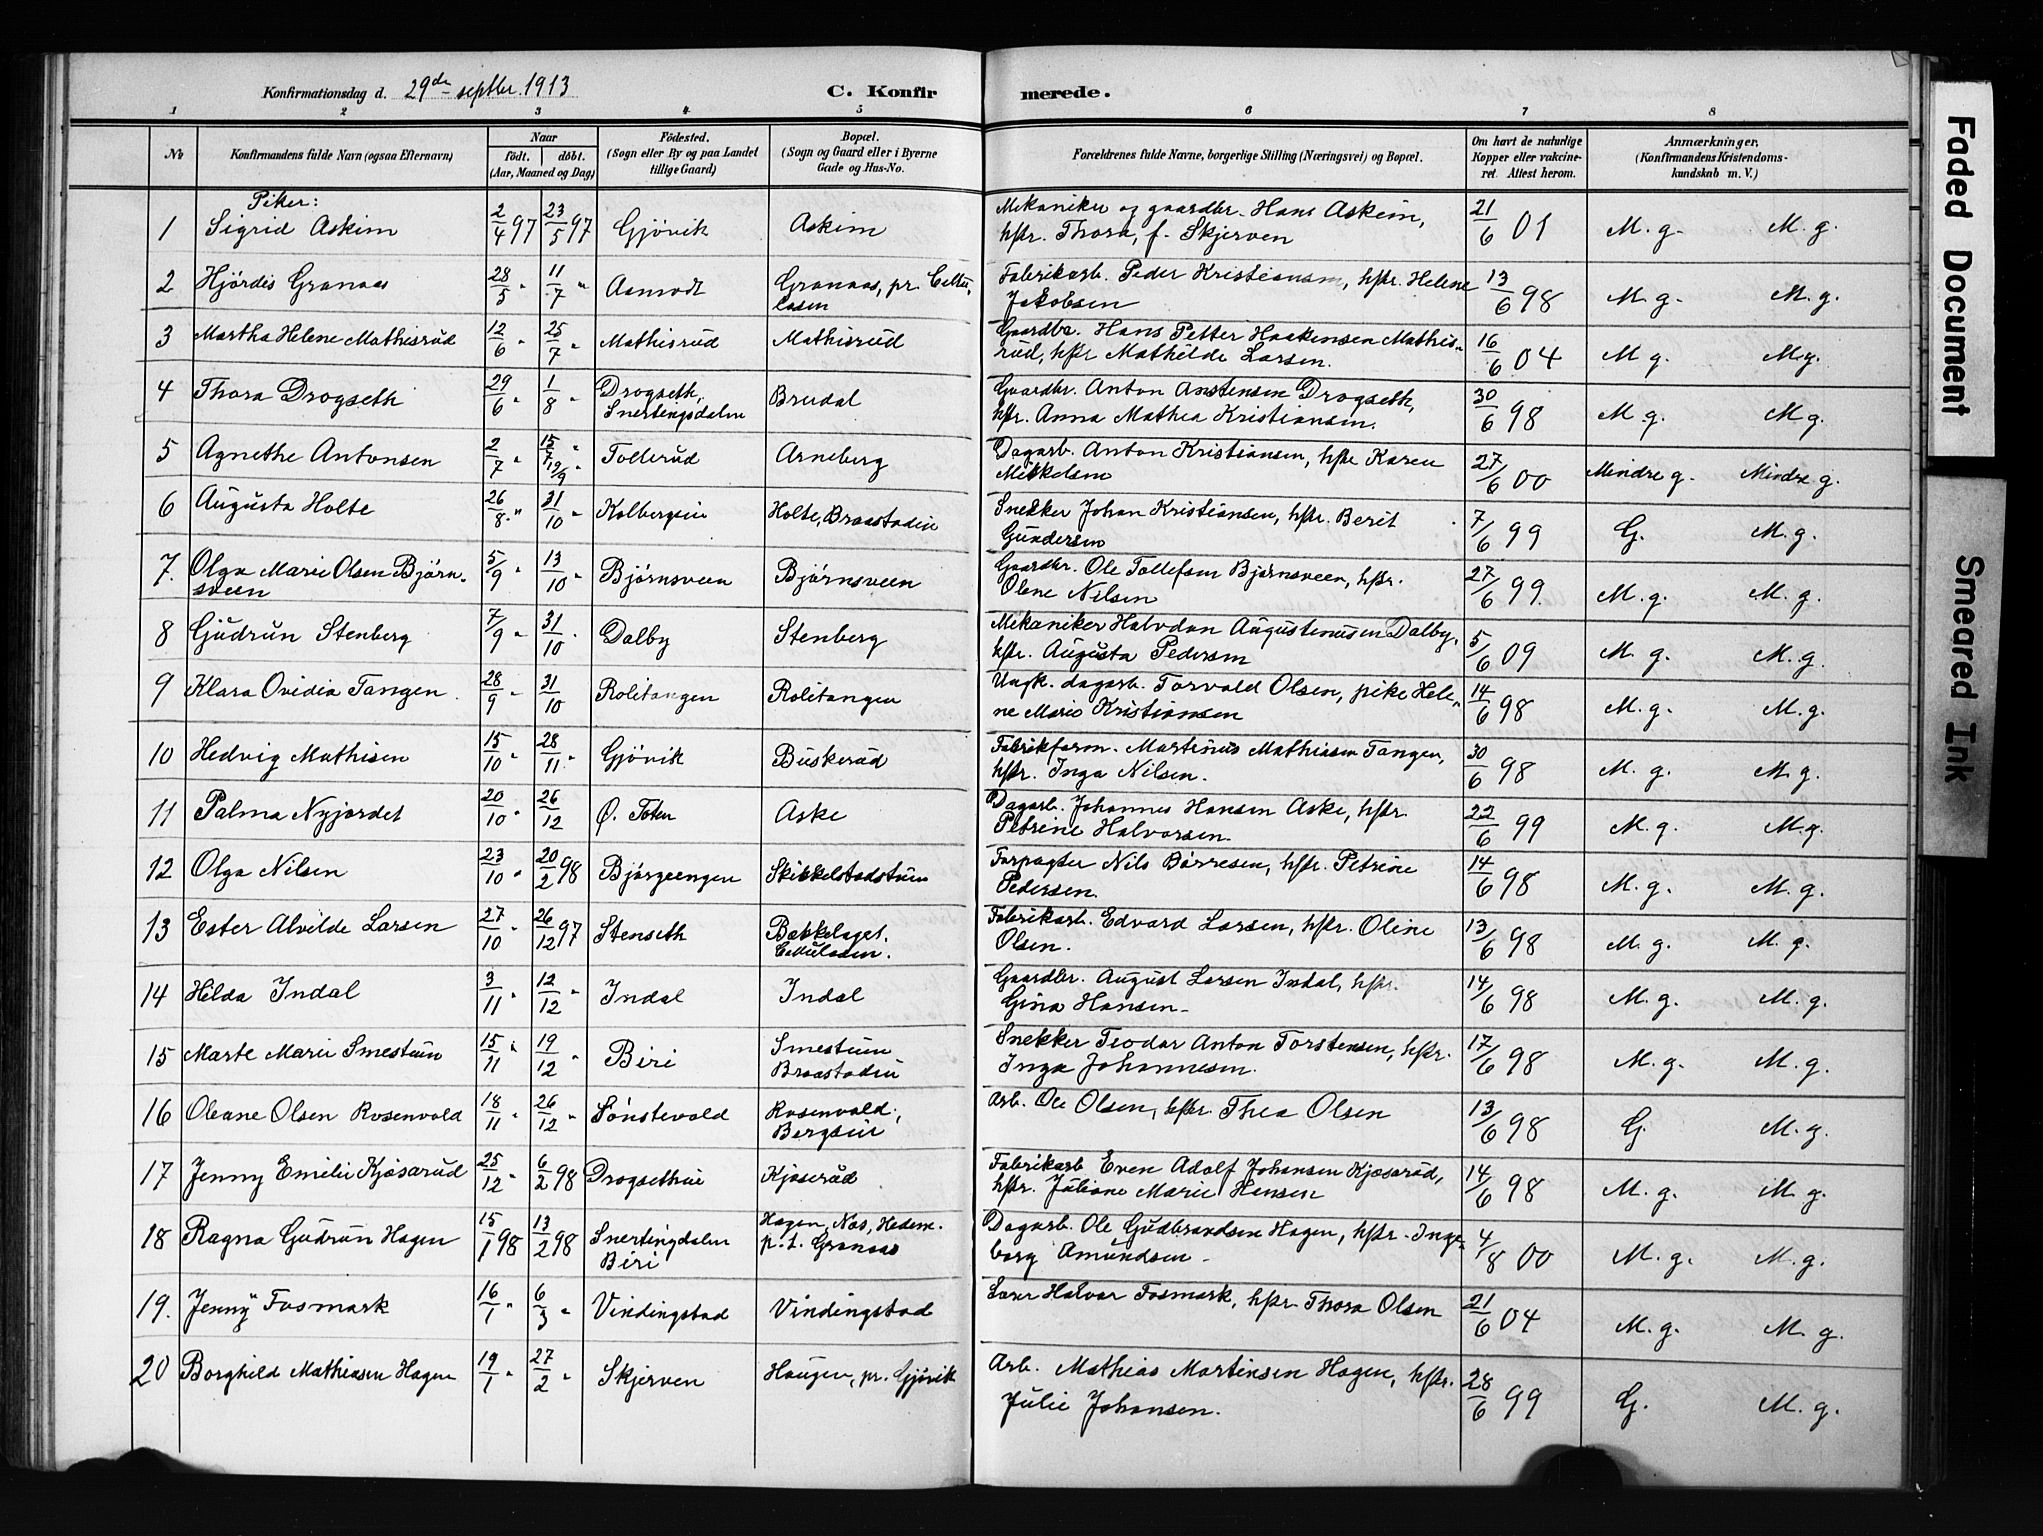 Konfirmationsdag d. 29de septbr. 1913 C. Konfirmerede.
1 2 3 4 5 6 7 8
No Konfirmandens fulde Navn (ogsaa Efternavn) Naar födt. döbt. (Aar, Maaned og Dag) Födested. (Sogn eller By og paa Landet tillige Gaard) Bopæl. (Sogn og Gaard eller i Byerne Gade og Hus-No. Forældrenes fulde Navne, borgerlige Stilling (Næringsvei) og Bopæl. Om havt de naturlige Kopper eller vakcineret. Attest herom. Anmærkninger, (Konfirmandens Kristendomskundskab m. V.)
Piker:
1 Sigrid Askim 2/4 97 23/5 97 Gjövik Askim Mekaniker og gaardbr. Hans Askim, hftr. Thora, f. Skjerven 21/6 01 M. g. M. g.
2 Hjördis Granaas 28/5 " 11/7 " Aamodt Granaas, pr. Cellulosen Fabrikarb. Peder Kristiansen, hftr. Helene Jakobsen 13/6 98 M. g. M. g.
3 Martha Helene Mathisrud 12/6 " 25/7 " Mathisrud Mathisrud Gaardbr. Hans Petter Haakensen Mathisrud, hftr Mathilde Larsen. 16/6 04 M g. M. g.
4 Thora Drogseth 29/6 " 1/8 " Drogseth, Snertingsdalen Brudal Gaardbr. Anton Anstensen Drogseth, hftr. Anna Mathea Kristiansen. 30/6 98 M. g. M g.
5 Agnethe Antonsen 2/7 " 15/7 " 19/9 " Tollerud Arneberg Dagarb. Anton Kristiansen, hftr Karen Mikkelsen 27/6 00 Mindre g. Mindre g.
6 Augusta Holte 26/8 " 31/10 " Kolbergeie Holte, Braastadeie Snekker Johan Kristiansen, hftr. Berit Gundersen 7/6 99 G. M. g.
7. Olga Marie Olsen Björnsveen 5/9 " 13/10 " Björnsveen Björnsveen Gaardbr. Ole Tollefsen Björnsveen, hftr. Olene Nilsen 27/6 99. M. g. M. g.
8 Gudrun Stenberg 7/9 " 31/10 " Dalby Stenberg Mekaniker Halvdan Augustinusen Dalby, hftr. Augusta Pedersen 5/6 09 M. g. M. g.
9 Klara Ovidia Tangen 28/9 " 31/10 Rolitangen Rolitangen Ungk. dagarb. Torvald Olsen, pike Helene Marie Kristiansen 14/6 98 M. g. M. g.
10 Hedvig Mathisen 15/10 " 28/11 " Gjövik Buskerud Fabrikform. Martinus Mathiasen Tangen, hftr. Inga Nilsen. 30/6 98 M. g. M. g.
11 Palma Nyjordet 20/10 " 26/12 Ø. Toten Aske Dagarb. Johannes Hansen Aske, hftr. Petrine Halvorsen. 22/6 99 M. g. M. g.
12 Olga Nilsen 23/10 " 20/2 98 Björgeengen Skikkelstadstuen Forpagter Nils Børresen, hftr. Petrine Pedersen. 14/6 98 M. g. M. g.
13 Ester Alvilde Larsen 27/10 " 26/12 97 Stenseth Bakkelaget. Cellulosen. Fabrikarb. Edvard Larsen, hftr. Oline Olsen. 13/6 98 M. g. M. g.
14 Hilda Indal 3/11 " 12/12 " Indal Indal Gaardbr. August Larsen Indal, hftr. Gina Hansen. 14/6 98 M. g. M. g.
15 Marte Marie Smestuen 15/11 " 19/12 " Biri Smestuen Braastadeie Snekker Teodor Anton Torstensen, hftr. Inga Johannesen. 17/6 98 M. g. M. g.
16 Oleane Olsen Rosenvold 18/11 " 26/12 " Sönstevold Rosenvold, Bergseie Arb. Ole Olsen, hftr. Thea Olsen 13/6 98 G. M. g.
17 Jenny Emilie Kjøsarud 25/12 " 6/2 98 Drogsetheie Kjöserud Fabrikarb Even Adolf Johansen Kjøsarud, hftr. Juliane Marie Hansen 14/6 98 M. g. M g.
18 Ragna Gudrun Hagen 15/1 98 13/2 98 Snertingdalen Biri Hagen, Nes, Hedem. p. t. Granaas Dagarb. Ole Gudbrandsen Hagen, hftr. Ingeborg Amundsen 4/8 00 M. g. M. g.
19. Jenny Fosmark 16/1 " 6/3 " Vindingstad Vindingstad Lærer Halvor Fosmark, hftr Thora Olsen 21/6 04 M. g. M. g.
20 Borghild Mathiasen Hagen 19/1 " 27/2 " Skjerven Haugen, pr. Gjövik Arb. Mathias Martinsen Hagen, hftr. Julie Johansen. 28/6 99 G. M. g.
Faded Document
Smeared Ink